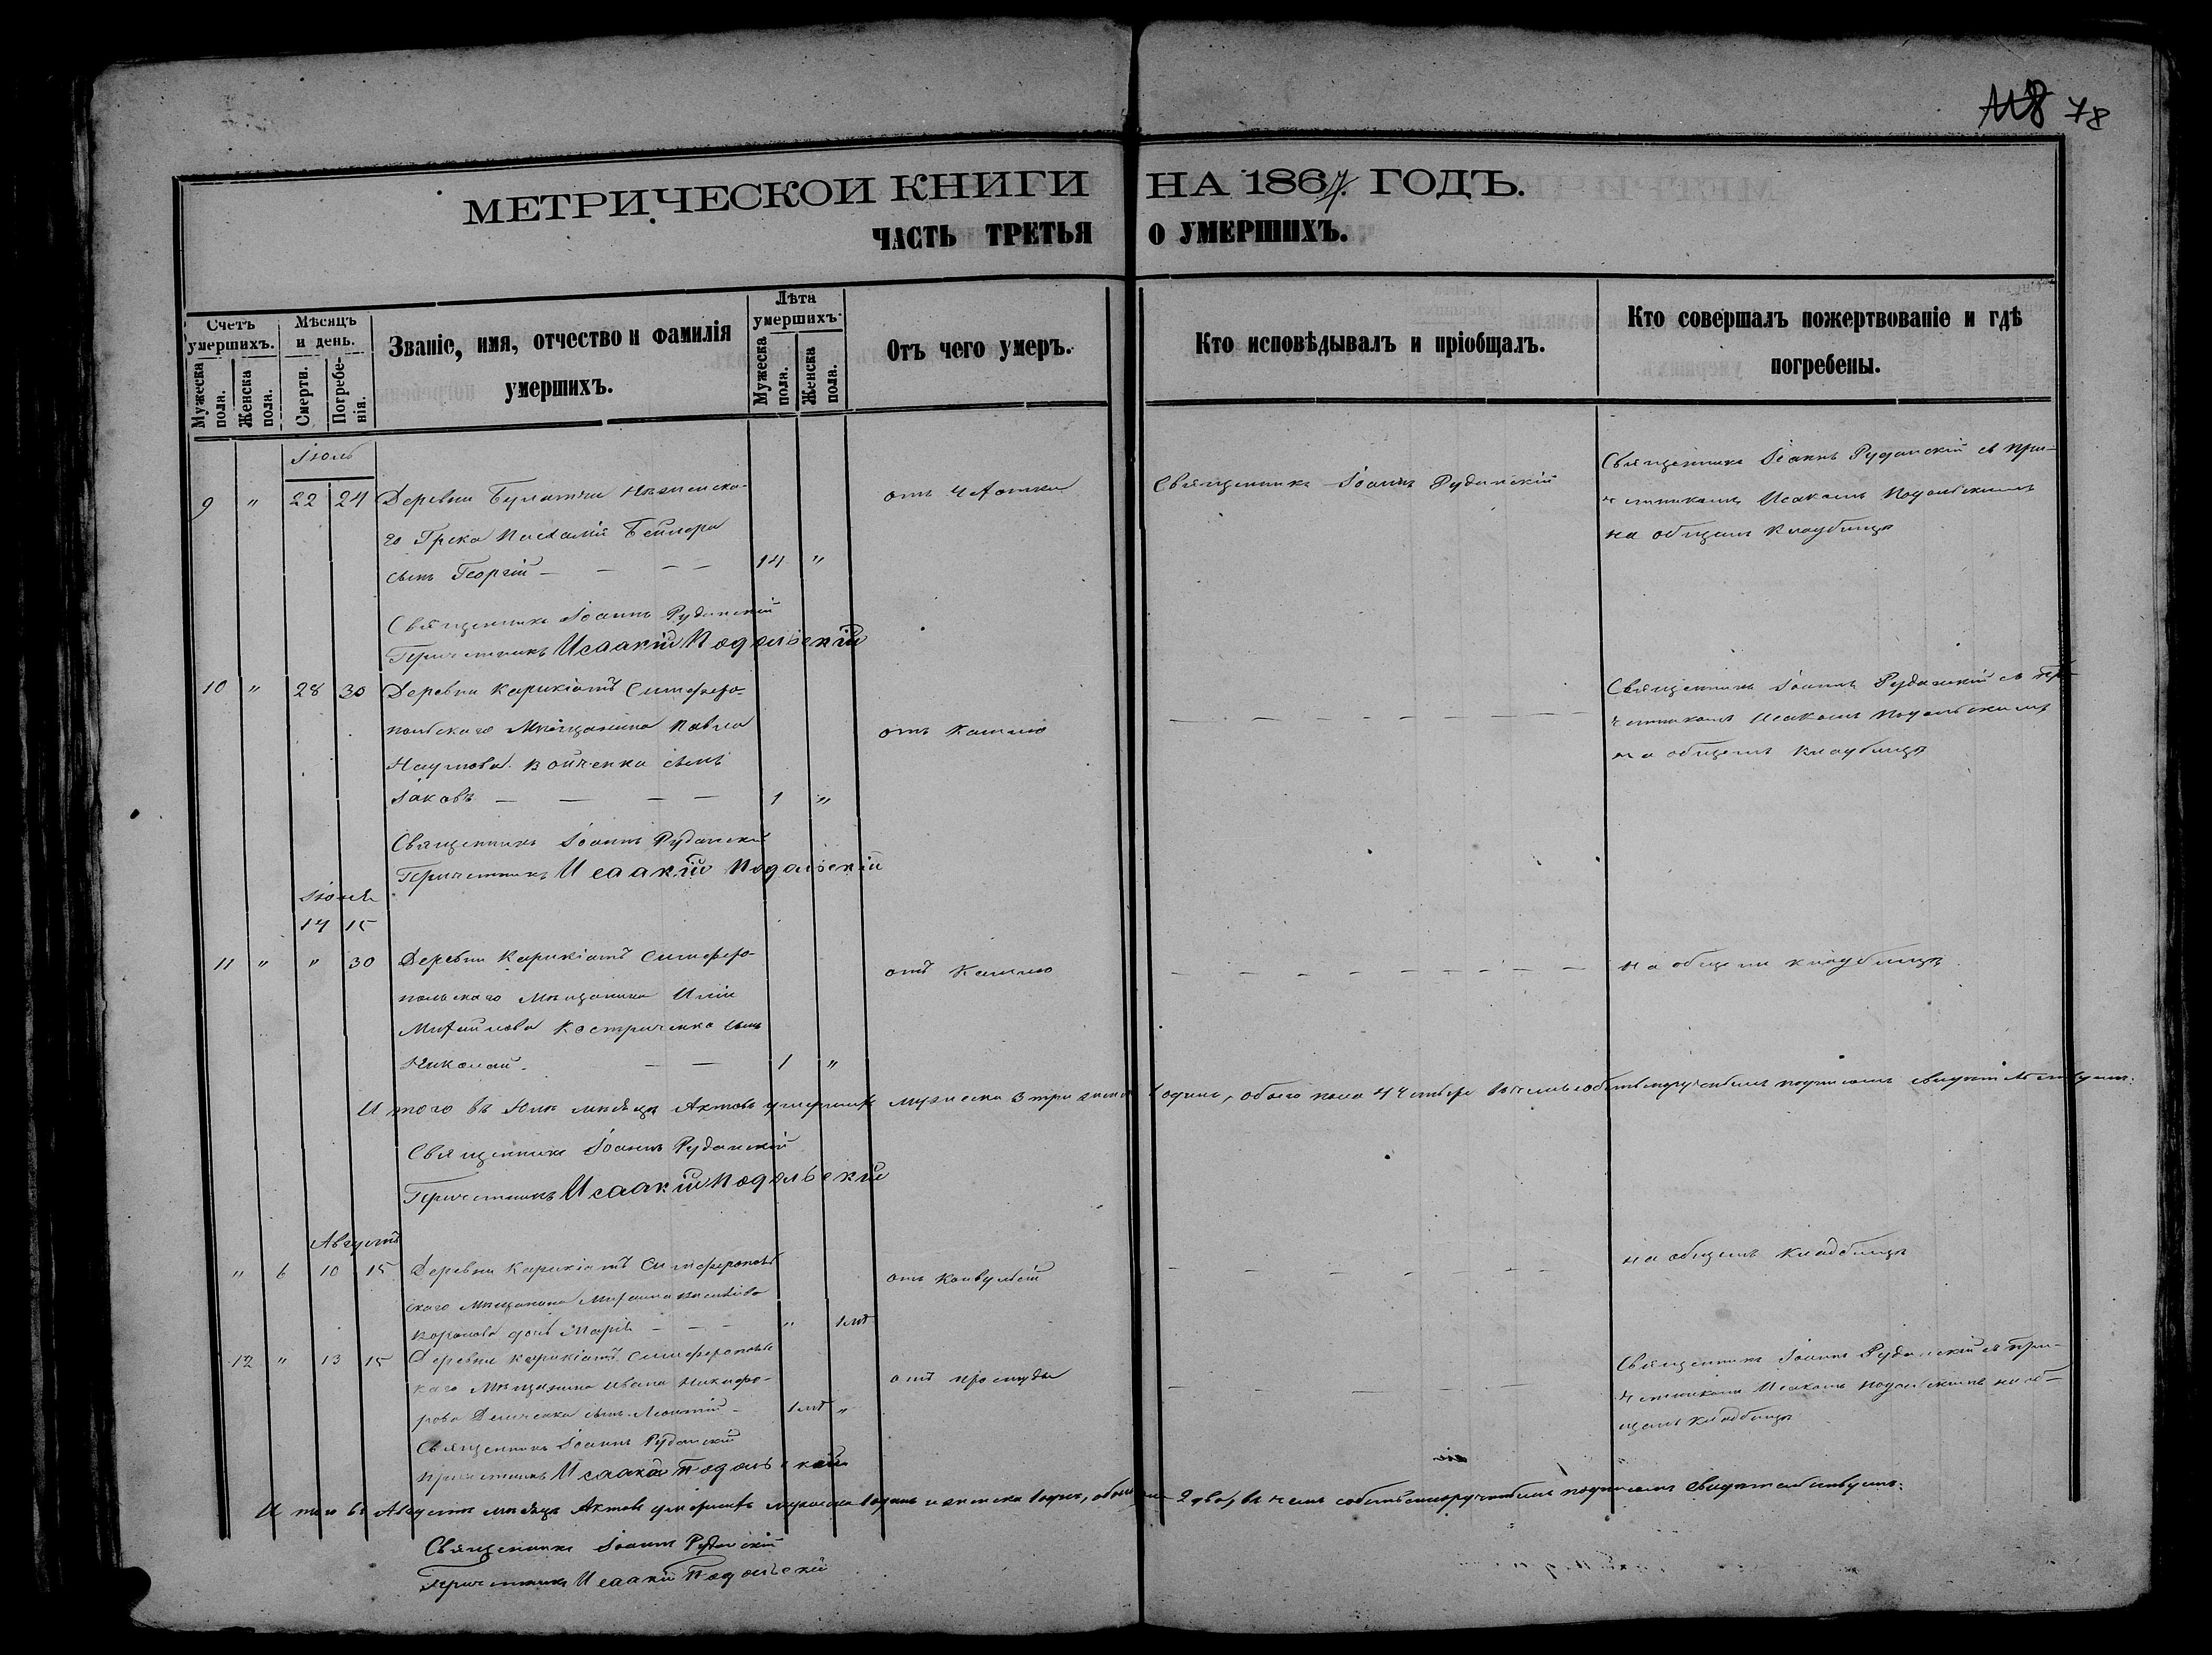 118 78
МЕТРИЧЕСКОИ КНИГИ НА 1867 ГОДЪ.
ЧАСТЬ ТРЕТЬЯ О УМЕРШИХЪ.
Счетъ умершихъ.
Мужеска пола.
Женска пола.
Мѣсяцъ и день.
Смерти.
Погребенія.
Званіе, имя, отчество и фамилія
умершихъ.
Лѣта умершихъ.
Мужеска пола.
Женска пола.
Отъ чего умеръ.
Кто исповѣдывалъ и пріобщалъ.
Кто совершалъ пожертвованіе и гдѣ
погребены.
Іюль
9 " 22 24 Деревни
го Грека
сынъ Георгій — — — — 14 "
отъ чахотки
Священникъ Іоаннъ Руданскій
Священникъ Іоаннъ Руданскій съ при-
четникомъ Исакомъ Подольскимъ
на общемъ кладбищѣ
Священникъ Іоаннъ Руданскій
Причетникъ Исаакій Подольскій
10 " 28 30 Деревни Карикіятъ Симферо-
польскаго Мѣщанина Павла
Наумова Войченка сынъ
Іаковъ — — — — 1 "
отъ кашлю
Священникъ Іоаннъ Руданскій съ при-
четникомъ Исакомъ Подольскимъ
на общемъ кладбищѣ
Священникъ Іоаннъ Руданскій
Причетникъ Исаакій Подольскій
14 15
11 " " 30 Деревни Карикіятъ Симферо-
польскаго Мѣщанина Иліи
Михайлова Костриченко сынъ
Николай. — — 1 "
отъ кашлю
на общемъ кладбищѣ
Итого въ мѣсяцѣ Актовъ умершихъ мужеска 3 три женска 1 одинъ, обоего пола 4 четыре въ чемъ собственноручнымъ подписомъ свидѣтельствуемъ:
Священникъ Іоаннъ Руданскій
Причетникъ Исаакій Подольскій
Августъ
" 6 10 15 Деревни Карикіятъ Симферополь
скаго Мѣщанина Михаила
дочь Марія — — — " 1 лѣт
отъ конвульсіи
на общемъ кладбищѣ
12 " 13 15 Деревни Карикіятъ Симферополь
скаго Мѣщанина Ивана Никифо-
рова сынъ Леонтій — 1 лѣт "
отъ простуды
Священникъ Іоаннъ Руданскій съ при-
четникомъ Исакомъ Подольскимъ на об-
щемъ кладбищѣ
Священникъ Іоаннъ Руданскій
причетникъ Исаакій Подольскій
Итого въ Августѣ мѣсяцѣ Актовъ умершихъ мужеска 1 одинъ и женска 1 одинъ, обоего 2 два, въ чемъ собственноручнымъ подписомъ свидѣтельствуемъ:
Священникъ Іоаннъ Руданскій
Причетникъ Исаакій Подольскій